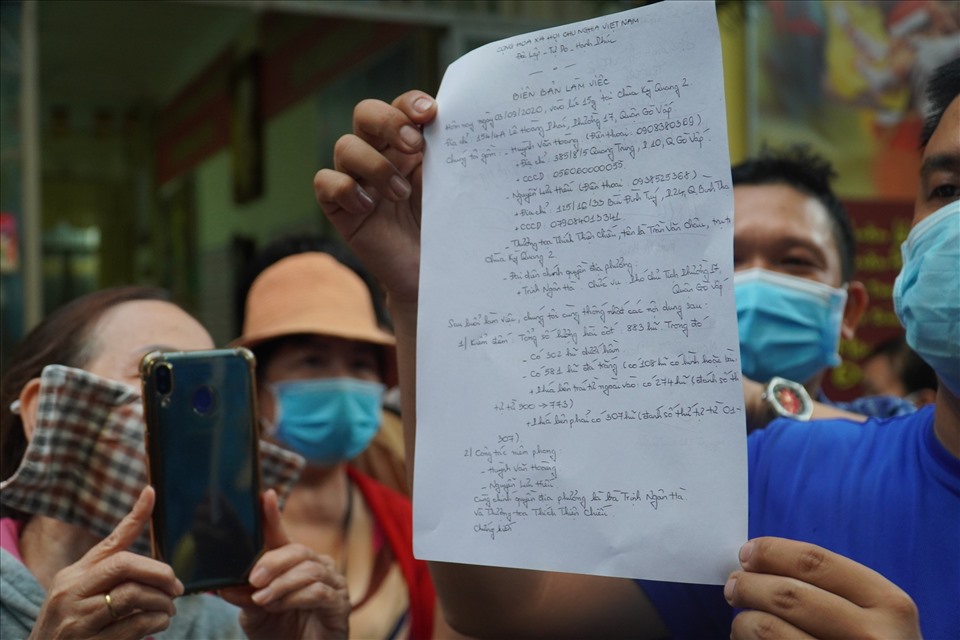 CỘNG HÒA XÃ HỘI CHỦ NGHĨA VIỆT NAM
Độc Lập - Tự Do - Hạnh Phúc
BIÊN BẢN LÀM VIỆC
Hôm nay ngày 03/09/2020, vào lúc 15g tại Chùa Kỳ Quang 2
Địa chỉ: 154/4A Lê Hoàng Phái, Phường 17, Quận Gò Vấp
Chúng tôi gồm: - Huỳnh Văn Hoàng (Điện thoại: 0908380369)
+ Địa chỉ: 185/8/5 Quang Trung, P.10, Q Gò Vấp.
+ CCCD 056060000055
- Nguyễn Lưu Hiếu (Điện thoại: 0938525368)
+ Địa chỉ 115/16/33 Bùi Đình Tuý, P.24, Q. Bình Thạ
+ CCCD: 079084013341
- Thượng tọa Thích Thiện Chiếu, tên là Trần Văn Chiếu, trụ trì
Chùa Kỳ Quang 2
- Đại diện chính quyền địa phương:
+ Trịnh Ngân Hà Chức vụ Phó chủ Tịch Phường 17,
Quận Gò Vấp
Sau buổi làm việc, chúng tôi cùng thống nhất các nội dung sau:
1/ Kiểm điểm: Tổng số lượng hũ cốt: 883 hũ. Trong đó
- Có 302 hũ dưới hầm
- Có 581 hũ đã trống (có 108 hũ có hình hoặc tê
+ Phía bên trái từ ngoài vào: có 274 hũ (đánh số th
tứ từ 500 → 773)
+ Phía bên phải có 307 hũ (đánh số thứ tự từ 01-
307)
2/ Công tác niêm phong:
- Huỳnh Văn Hoàng
- Nguyễn Lưu Hiếu
Cùng chính quyền địa phương là bà Trịnh Ngân Hà
và Thượng tọa Thích Thiện Chiếu.
Chứng kiến